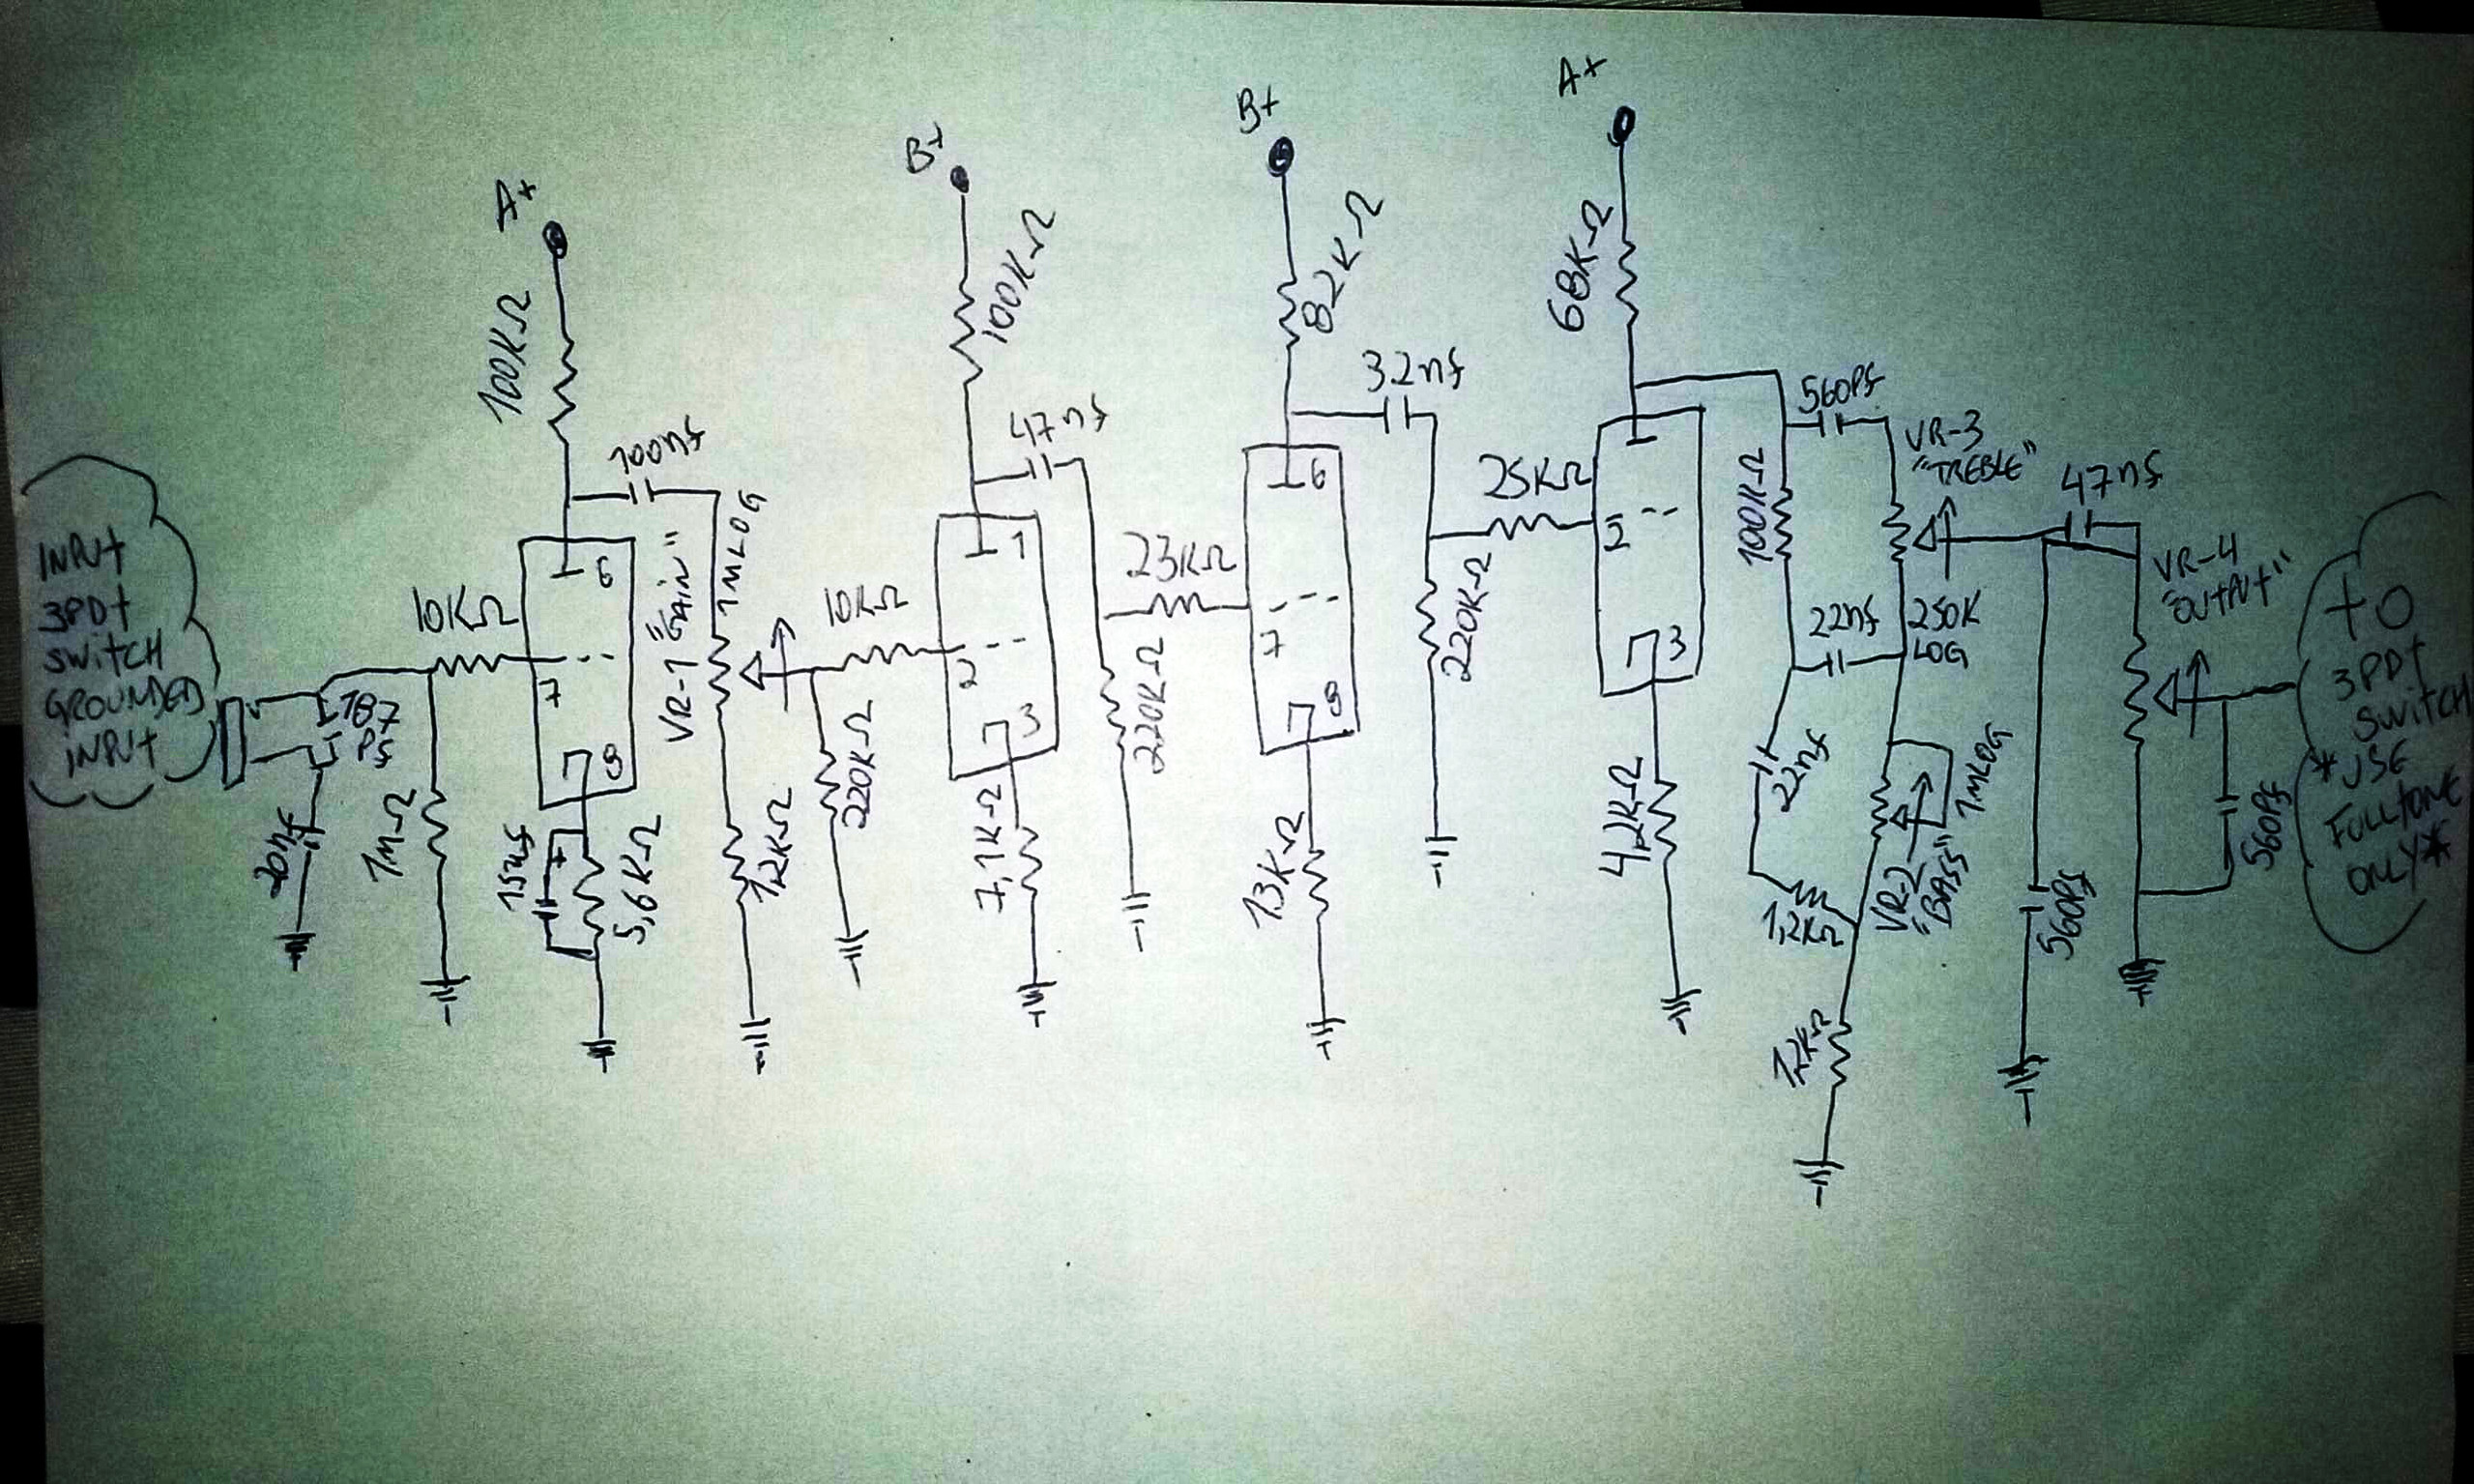 INPUT
3PDT
SWITCH
GROUNDED
INPUT
20nf
1MΩ
10KΩ
A+
100KΩ
100nf
6
7
8
15uf
+
5,6KΩ
VR-1 "GAIN"
1MLOG
1,2KΩ
10KΩ
220KΩ
B+
100KΩ
47nf
1
2
3
7,1KΩ
220KΩ
23KΩ
B+
82KΩ
3.2nf
6
7
8
13KΩ
220KΩ
25KΩ
A+
68KΩ
2
3
4,2KΩ
100KΩ
560Pf
VR-3
"TREBLE"
250K
LOG
22nf
22nf
1,2KΩ
VR-2
"BASS"
1MLOG
1,2KΩ
47nf
560Pf
VR-4
"OUTPUT"
560Pf
TO
3PDT
SWITCH
*USE
FULLTONE
ONLY*